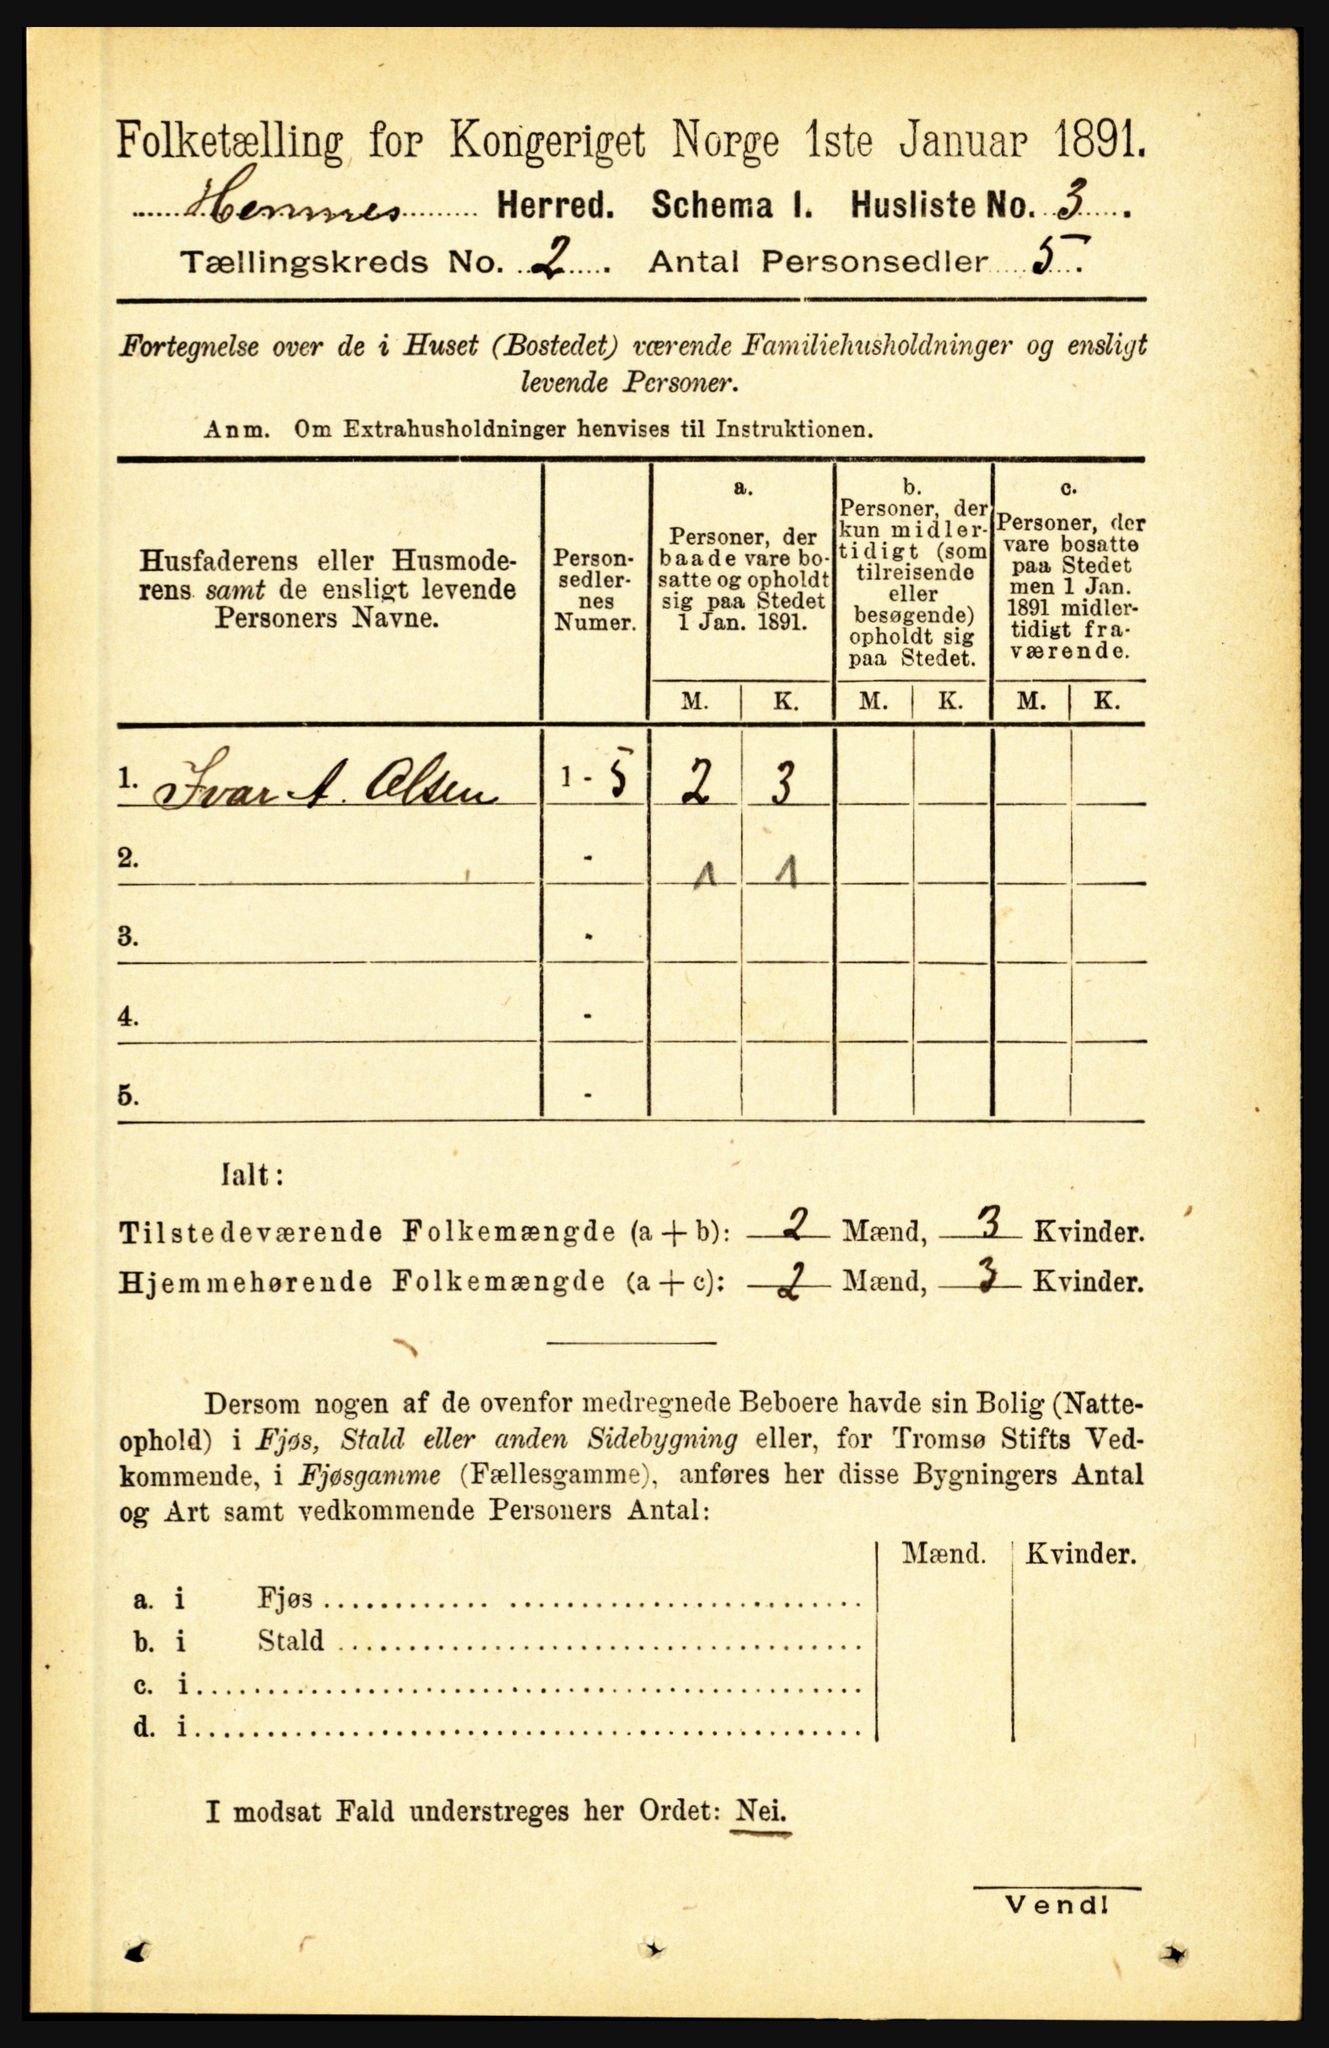 Folketælling for Kongeriget Norge 1ste Januar 1891.
Hemnes Herred. Schema I. Husliste No. 3.
Tællingskreds No. 2. Antal Personsedler 5.
Fortegnelse over de i Huset (Bostedet) værende Familiehusholdninger og ensligt
levende Personer.
Anm. Om Extrahusholdninger henvises til Instruktionen.
Husfaderens eller Husmode-
rens samt de ensligt levende
Personers Navne.
Person-
sedler-
nes
Numer.
a.
Personer, der
baade vare bo-
satte og opholdt
sig paa Stedet
1 Jan. 1891.
b.
Personer, der
kun midler-
tidigt (som
tilreisende
eller
besøgende)
opholdt sig
paa Stedet.
c.
Personer, der
vare bosatte
paa Stedet
men 1 Jan.
1891 midler-
tidigt fra-
værende.
M. K. M. K. M. K.
1. Ivar A. Olsen 1 - 5 2 3
2. - 1 1
3. -
4. -
5. -
Ialt:
Tilstedeværende Folkemængde (a + b): 2 Mænd, 3 Kvinder.
Hjemmehørende Folkemængde (a + c): 2 Mænd, 3 Kvinder.
Dersom nogen af de ovenfor medregnede Beboere havde sin Bolig (Natte-
ophold) i Fjøs, Stald eller anden Sidebygning eller, for Tromsø Stifts Ved-
kommende, i Fjøsgamme (Fællesgamme), anføres her disse Bygningers Antal
og Art samt vedkommende Personers Antal:
Mænd. Kvinder.
a. i Fjøs
b. i Stald
c. i
d. i
I modsat Fald understreges her Ordet: Nei.
Vend!